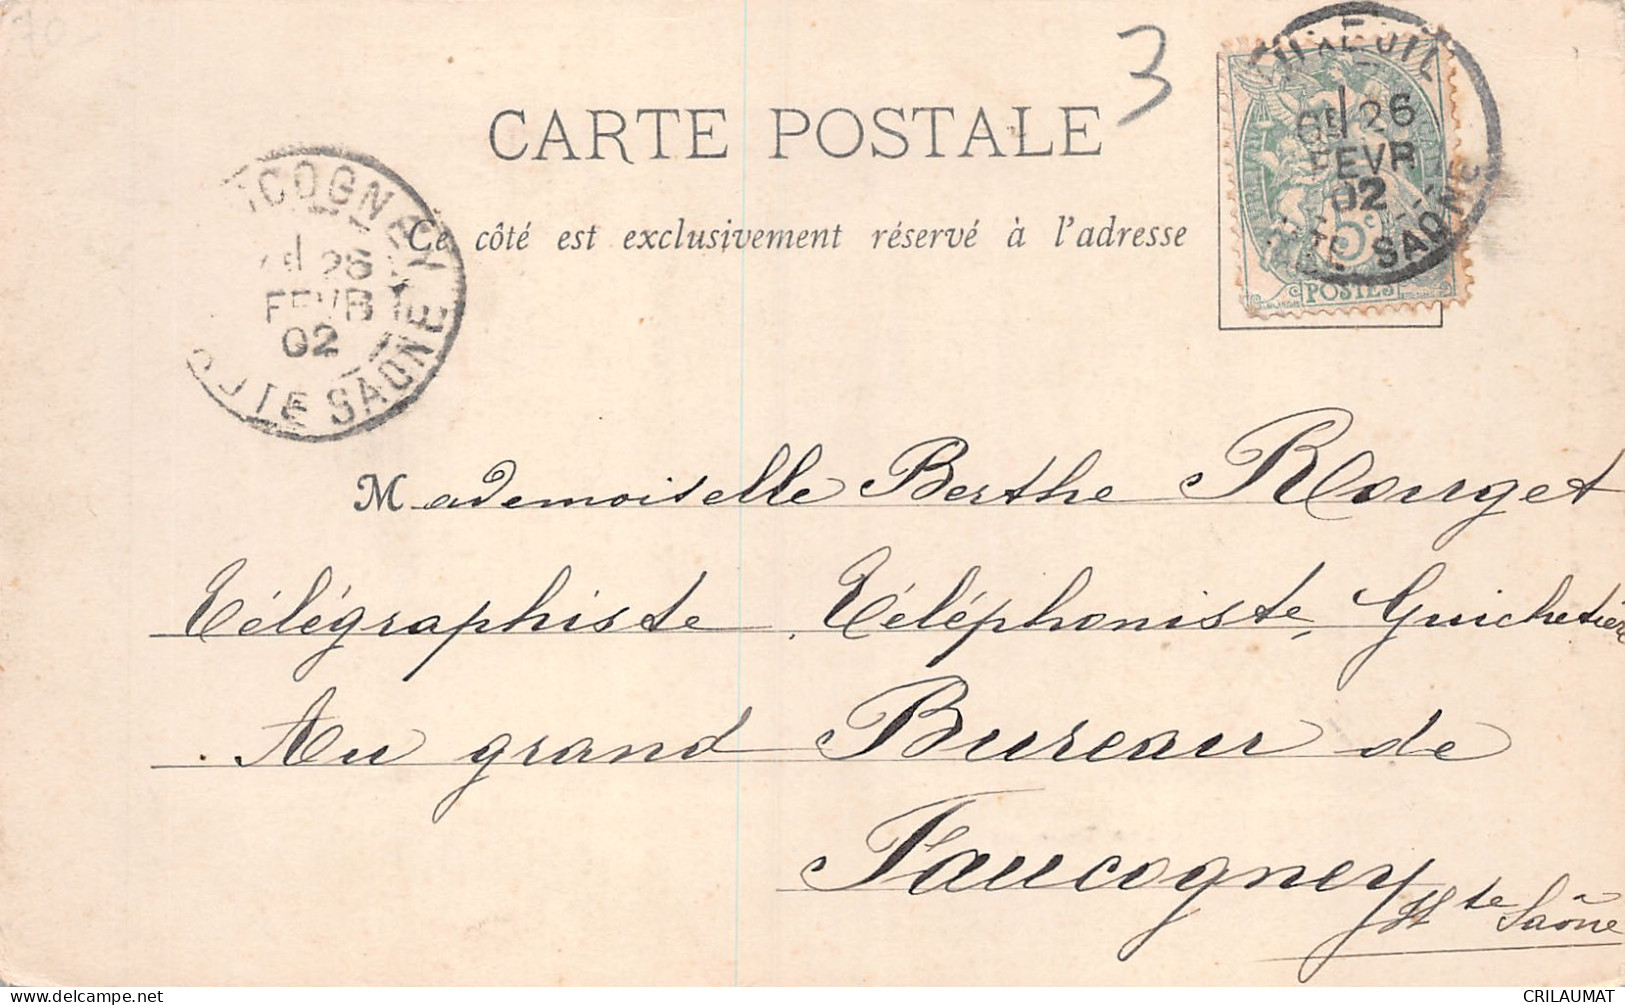 70-
3
CARTE POSTALE
Ce côté est exclusivement réservé à l'adresse
LUXEUIL
6E 26
FEVR
02
HTE SAONE
5c
POSTES
COGNEY
26
FEVR
02
SAONE
Mademoiselle Berthe Rouget
Télégraphiste, Téléphoniste, Guichetière
Au grand Bureau de
Faucogney
Hte Saône
CRILAUMAT